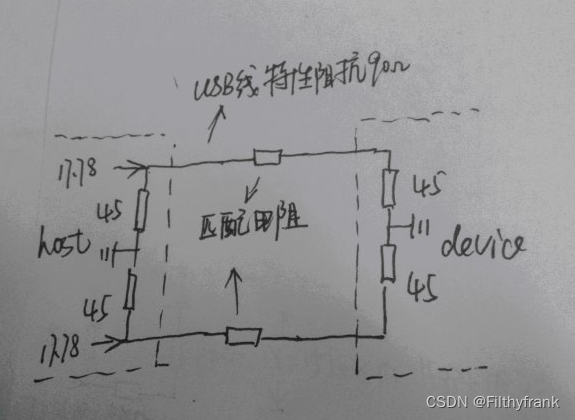 USB线特性阻抗90Ω
17.78
45
45
host
匹配电阻
device
45
45
17.78
CSDN @Filthyfrank